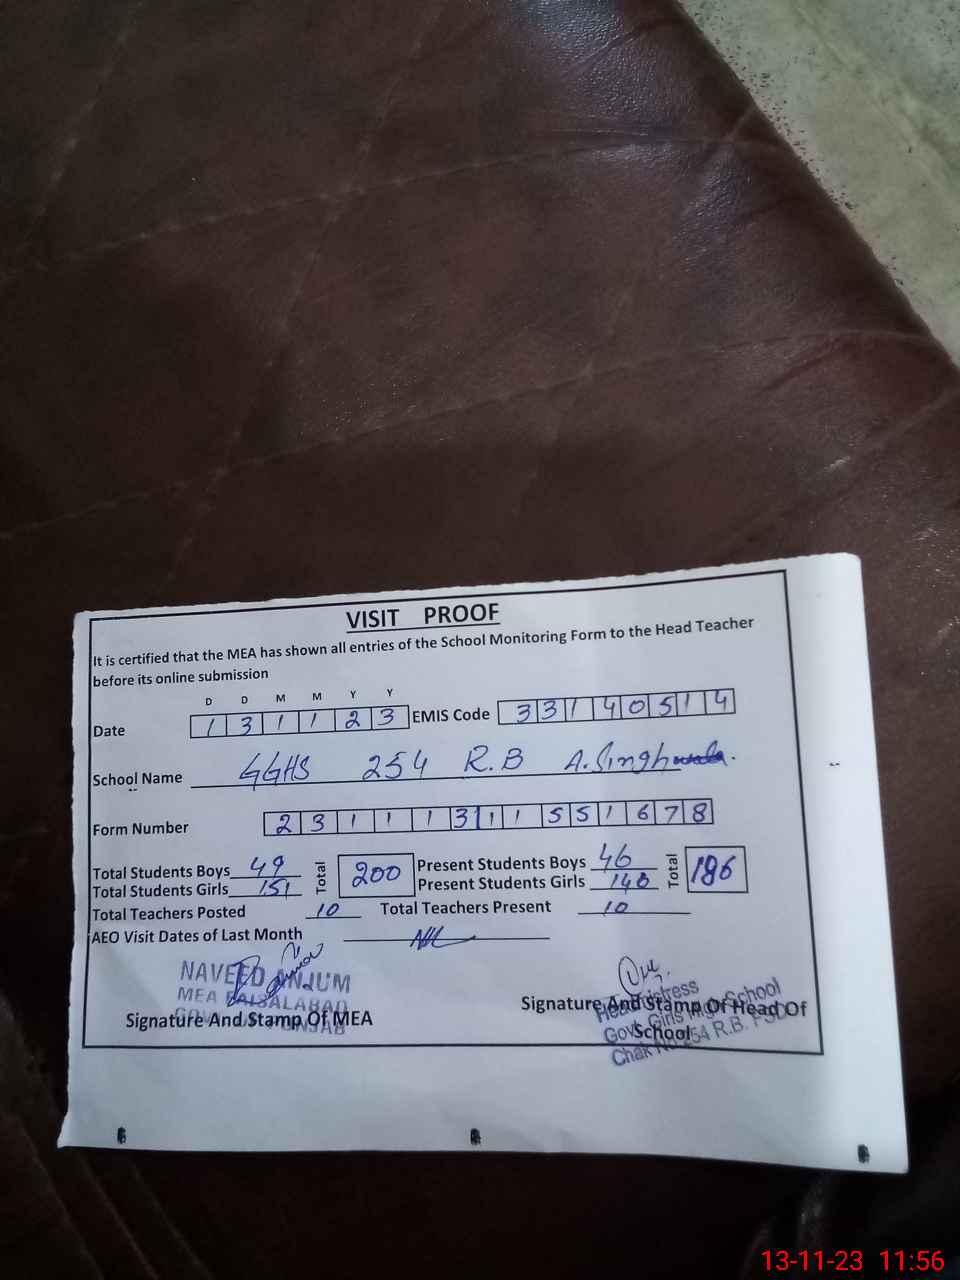 VISIT PROOF
It is certified that the MEA has shown all entries of the School Monitoring Form to the Head Teacher
before its online submission
D D M M Y Y
Date 1 3 1 1 2 3 EMIS Code 3 3 1 4 0 5 1 4
School Name GGHS 254 R.B A.Singhwala.
Form Number 2 3 1 1 1 3 1 1 5 5 1 6 7 8
Total Students Boys 49 Total 200 Present Students Boys 46 Total 186
Total Students Girls 151 Present Students Girls 140
Total Teachers Posted 10 Total Teachers Present 10
AEO Visit Dates of Last Month Nil
NAVEED ANJUM
MEA FAISALABAD
Signature And Stamp Of MEA
Signature And Stamp Of Head Of
School
Headmistress
Govt. Girls High School
Chak No. 254 R.B. FSD
13-11-23 11:56